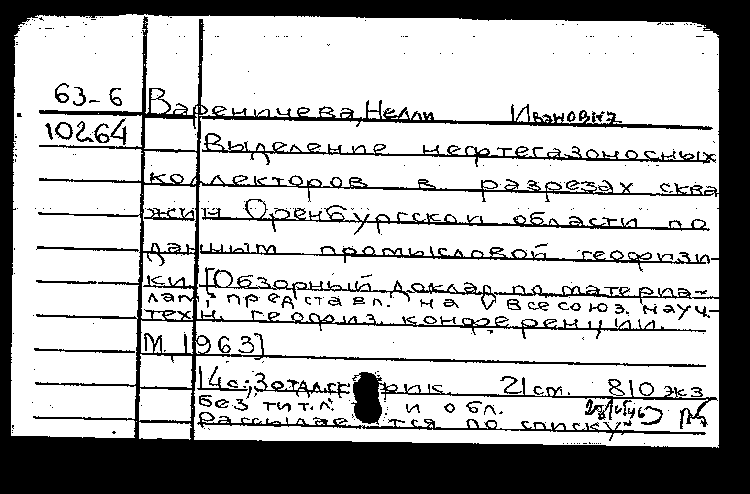 63-6 Вареничева, Нелли Ивановна
10264 Выделение нефтегазоносных
коллекторов в разрезах сква
жин Оренбургской области по
данным промысловой геофизи-
ки [Обзорный доклад по материа-
лам, представл. на V Всесоюз. науч.-
техн. геофиз. конференции.
М, 1963]
14 с; 3 отд. 21 ст. 810 экз
без тит. л. и обл.
Рассылается по списку"